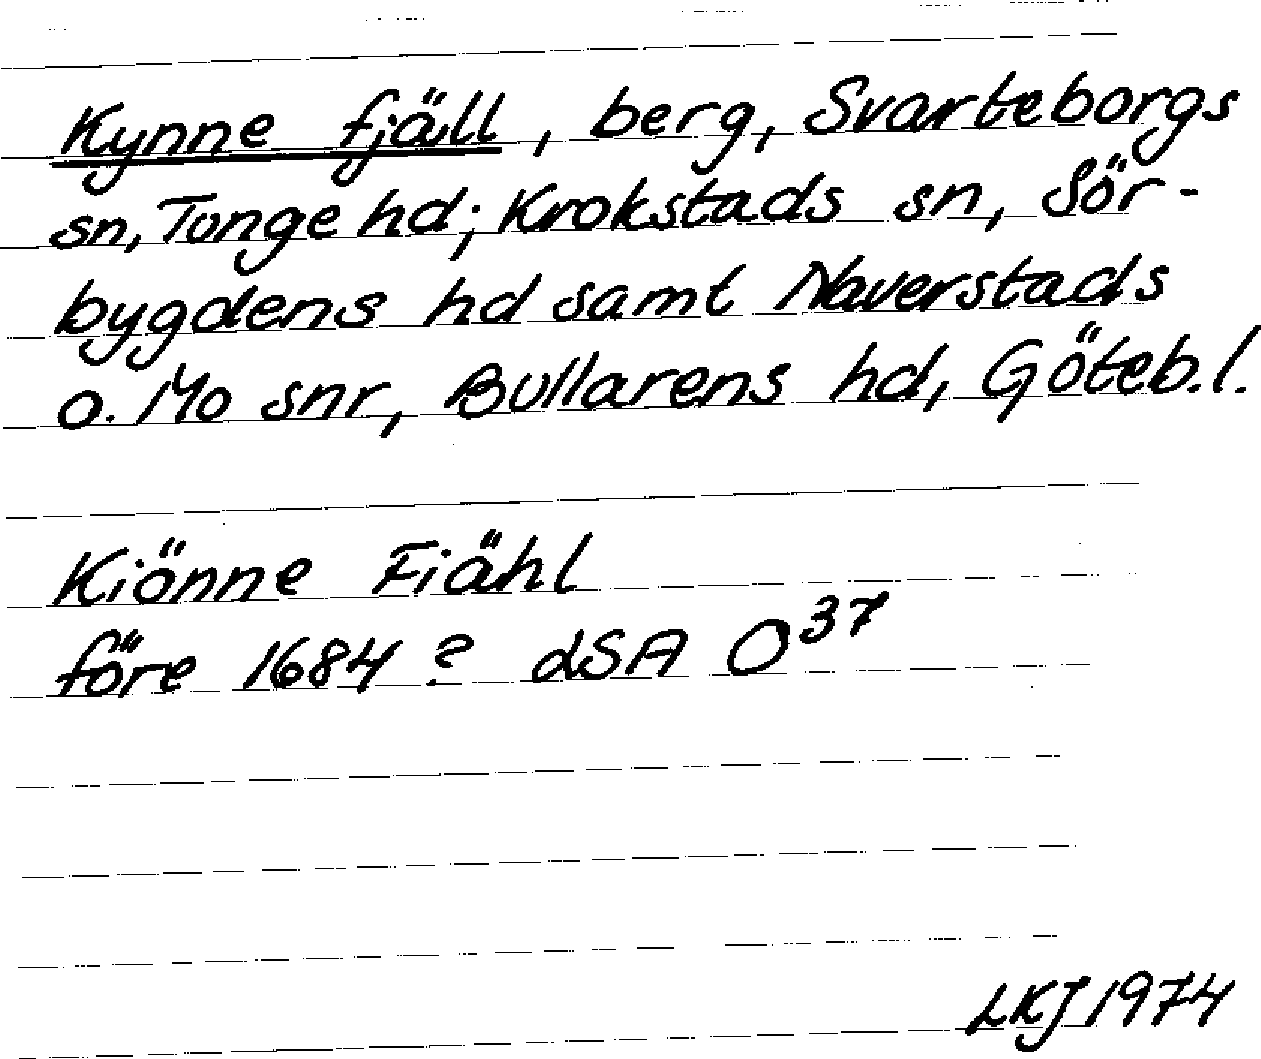 Kynne fjäll, berg, Svarteborgs
sn, Tunge hd; Krokstads sn, Sör-
bygdens hd samt Naverstads
o. Mo snr, Bullarens hd, Göteb.l.
Kiönne Fiähl
före 1684? dSA O³⁷
LKJ 1974